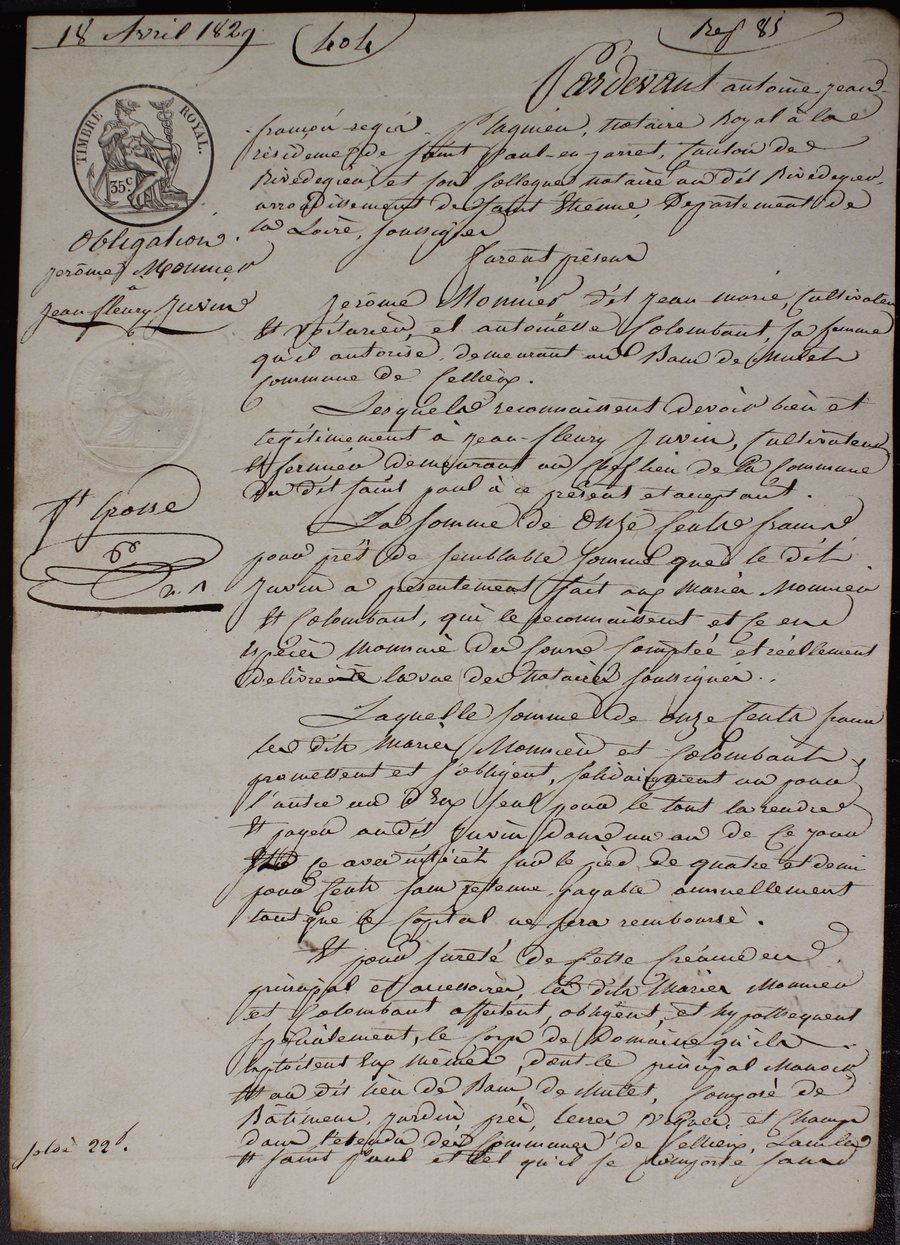 18 Avril 1829
404
Rep 85
TIMBRE ROYAL.
35 c
Obligation
jerôme Monnier
a
jean fleury Juvin
1t Grosse
solde 22 f.
Pardevant antoine jean
françois regis Plagnieu, notaire Royal à la
résidence de saint paul-en-jarret, Canton de
Rivedegier, et son Collegue notaire au dit Rivedegier,
arrondissement de Saint Etienne, Departement de
la Loire, soussignés
furent présens
Jerôme Monnier dit jean marie, Cultivateur
Et voiturier, et antoinette Colombant, sa femme
qu'il autorise, demeurant au Ban de Mulet
Commune de Cellieu.
Lesquels reconnaissent devoir bien et
légitimement à jean-fleury Juvin, Cultivateur
Et fermier demeurant au Cheflieu de la Commune
du dit saint paul à ce présent et acceptant.
La somme de Onze Cents francs
pour prêt de semblable somme que le dit
Juvin a présentement fait aux Mariés Monnier
Et Colombant, qui le reconnaissent et ce en
espèces Monnaie du Cours Comptée et réellement
delivrée à la vue des Notaires soussignés.
Laquelle somme de onze Cents francs
les dits Mariés Monnier et Colombant,
promettent et s'obligent, solidairement un pour
l'autre un d'Eux seul pour le tout la rendre
Et payer au dit Juvin dans un an de ce jour
Et ce avec intérêt sur le pied de quatre et demi
pour Cent sans retenue payable annuellement
tant que le Capital ne sera remboursé.
Et pour sureté de Cette Créance en
principal et accessoires, les dits Mariés Monnier
et Colombant affectent, obligent, et hypothequent
spécialement, le Corps de Domaine qu'ils
Exploitent Eux mêmes, dont le principal Manoir
Est au dit lieu de Ban de Mulet, Composé de
Bâtimens, Jardin, prés, terres, vignes, et Champs
dans l'etendu des Communes de Cellieu,
Et Saint Paul et tel qu'il se Comporte sans